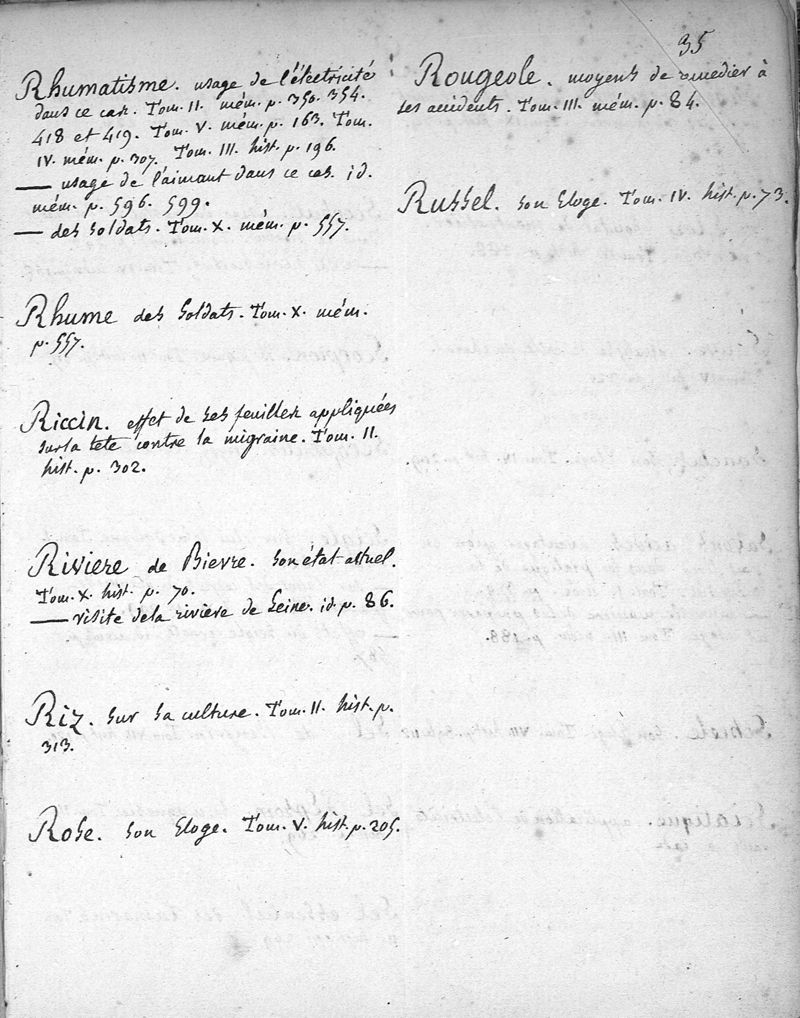 35
Rhumatisme. usage de l'électricité
dans ce cas. Tom. II. mém. p. 350. 354.
418 et 419. Tom. V. mém. p. 163. Tom.
IV. mém. p. 307. Tom. III. hist. p. 196.
— usage de l'aimant dans ce cas. id.
mém. p. 596. 599.
— des soldats. Tom. X. mém. p. 557.
Rhume des soldats. Tom. X. mém.
p. 557.
Riccin. effet de ses feuilles appliquées
sur la tete contre la migraine. Tom. II.
hist. p. 302.
Riviere de Bievre. son état actuel.
Tom. X. hist. p. 70.
— visite de la rivière de Seine. id. p. 86.
Riz. sur sa culture. Tom. II. hist. p.
313.
Rose. son Eloge. Tom. V. hist. p. 205.
Rougeole. moyens de remedier à
ses accidents. Tom. III. mém. p. 84.
Russel. son Eloge. Tom. IV. hist. p. 73.